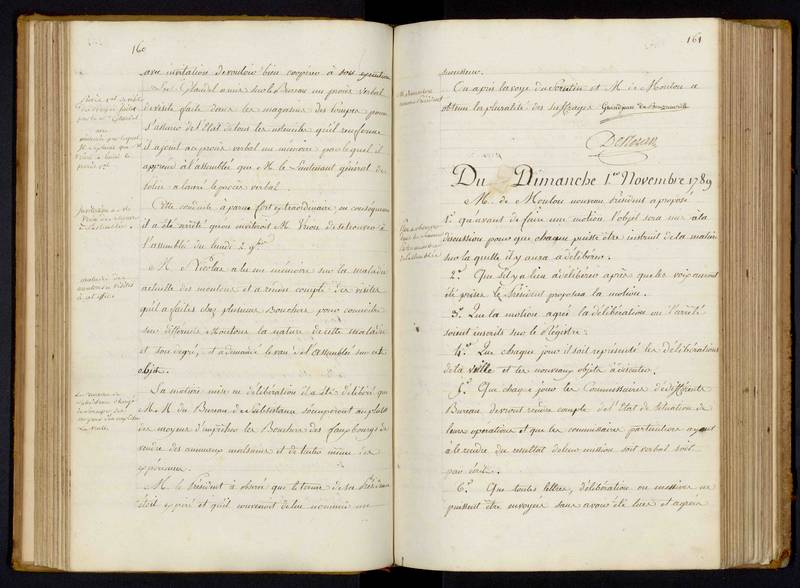 160
avec invitation de vouloir bien coopérer à son exécution
a mis sur le Bureau un procès verbal
de visite faite dans les magasins des Pompes pour
s'assurer de l'Etat de tous les ustenciles qu'il renferme
il a joint au procès verbal un mémoire par lequel il
apprend à l'assemblée que M. le Lieutenant général de
police a lavré le procès verbal.
Cette conduite a parue fort extraordinaire en conséquence
il a été arrêté qu'on inviteroit M. Vrion de se trouver à
l'assemblée du lundi 2 9bre
M. Nicolas a lu un mémoire sur la maladie
actuelle des moutons et a rendu compte des visites
qu'il a faites chez plusieurs Bouchers pour connoitre
sur differents Moutons la nature de cette maladie
et son degré, et a demandé le vœu de l'assemblée sur cet
objet.
La matière mise en délibération il a été délibéré que
M.M. du Bureau des Subsistances s'occuperont au plutôt
des moyens d'empêcher les Bouchers des fauxbourgs de
vendre des animaux malsains et de tenter même des
expériences.
M. le Président a observé que le terme de sa Présidence
étoit expiré et qu'il convenoit de lui nommer un
161
successeur.
On a pris la voye du Scrutin et M. de Moulon a
obtenu la pluralité des suffrages
Du Dimanche 1.er Novembre 1789
M. de Moulon nouveau président a proposé
1.° qu'avant de faire une motion l'objet sera mis à la
discussion pour que chaque puisse être instruit de la matière
sur laquelle il y aura à délibérer.
2.° Que s'il y a lieu à délibérer après que les voix auront
été prises le Président proposera la motion.
3.° Que la motion après la délibération ou l'arrêté
soient inscrits sur le Registre.
4.° Que chaque jour il soit représenté les délibérations
de la veille et les nouveaux objets à discuter.
5.° Que chaque jour les Commissaires de differents
Bureau devront rendre compte de l'Etat de Situation de
leurs operations et que les commissaires particuliers ayent
à le rendre du resultat de leur mission soit verbal soit
par écrit.
6.° Que toutes lettres, délibération ou missives ne
puissent être envoyées sans avoir été lues et agréées